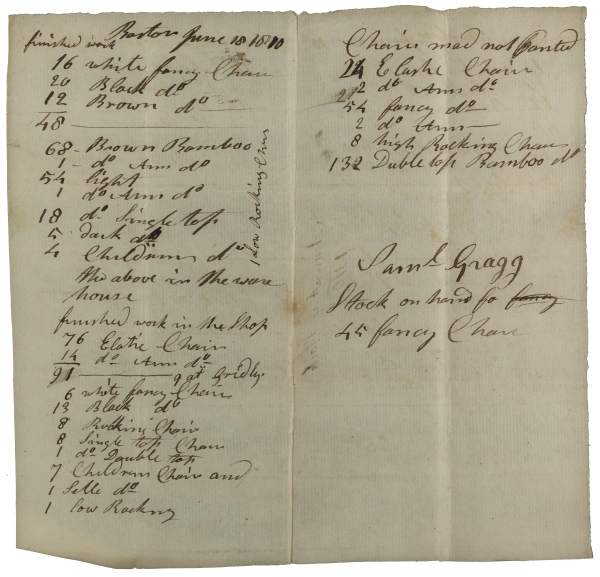 Boston June 18 1810
finished work
16 white fancy Chair
20 Black do
12 Brown do
48
68 - Brown Bamboo
1 - do Arm do
54 light
1 do Arm do
18 do Single top
5 dark do
4 Children do
the above in the ware
house
1 Low Rocking Chair
finished work in the Shop
76 Elastic Chairs
14 do Arm do
91 9 at Gridley
6 white fancy Chairs
13 Black do
8 Rocking Chair
8 Single top Chair
1 do Double top
7 Children Chair and
1 Selle do
1 low Rocking
Chairs mad not painted
24 Elastic Chair
2 do Arm do
54 fancy do
2 do Arm
8 high Rocking Chair
132 Duble top Bamboo do
Saml Gragg
Stock on hand fo fancy
45 fancy Chair